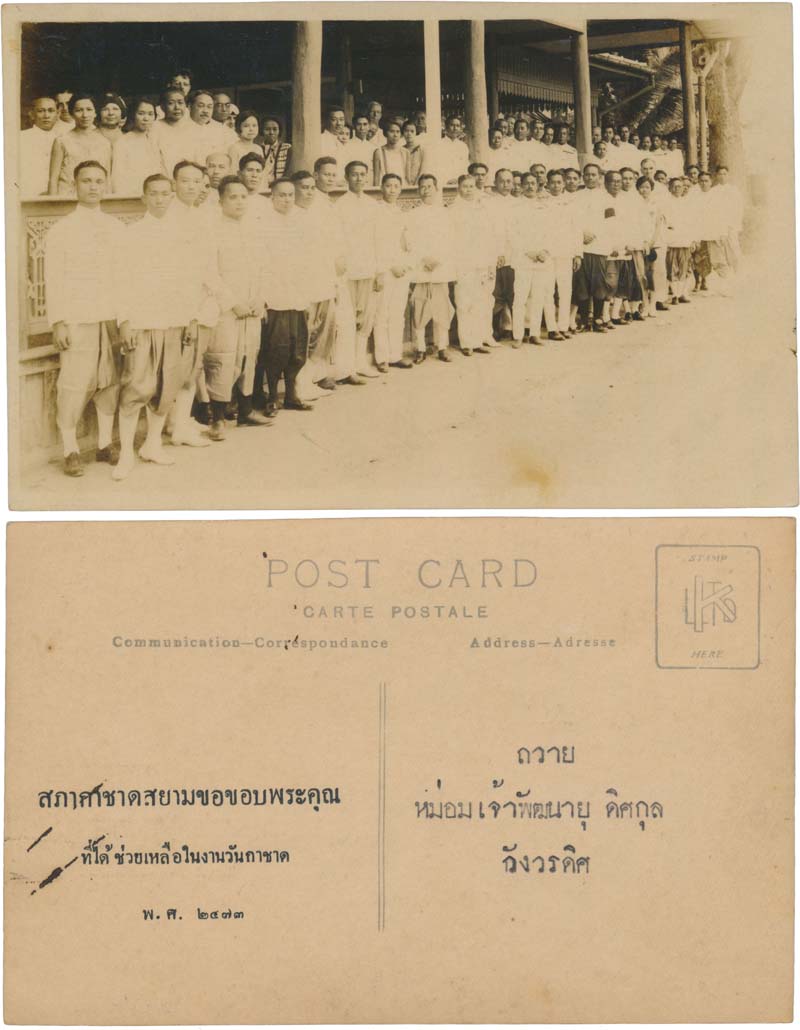 POST CARD
CARTE POSTALE
Communication—Correspondance
Address—Adresse
STAMP
HERE
สภากาชาดสยามขอขอบพระคุณ
ที่ได้ช่วยเหลือในงานวันกาชาด
พ.ศ. ๒๔๗๓
ถวาย
หม่อมเจ้าพัฒนายุ ดิศกุล
วังวรดิศ